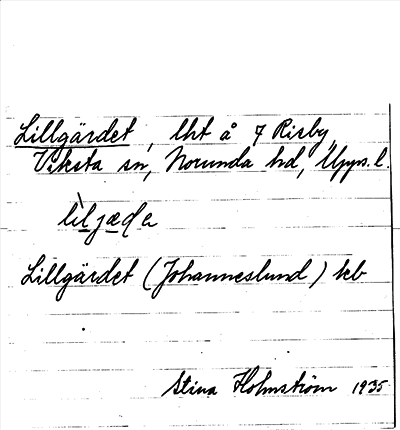 Lillgärdet, lht å 7 Risby,
Viksta sn, Norunda hd, Upps. l.
Lillgärdet (Johanneslund) kb
Stina Holmström 1935